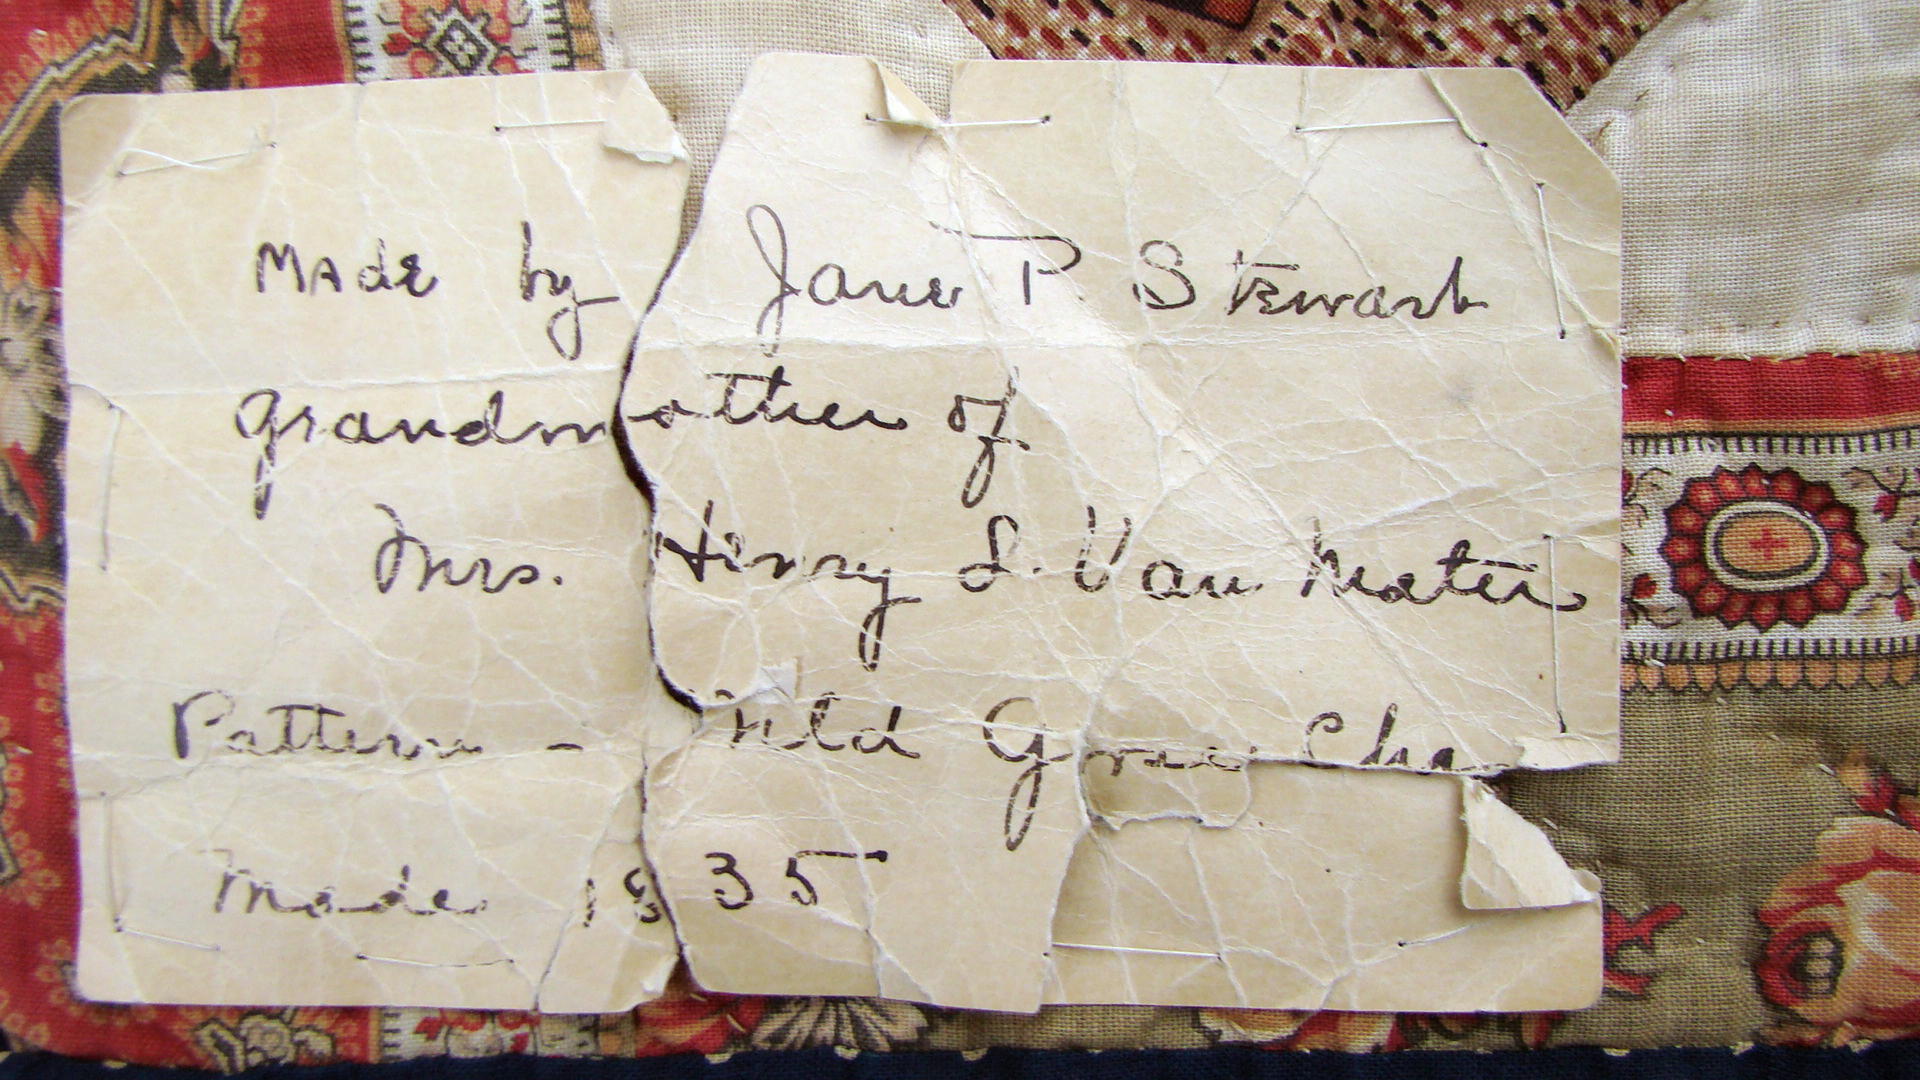 Made by Jane P. Stewart
grandmother of
Mrs. Henry S. Van Mater
Pattern - Wild Goose Cha
Made 1835